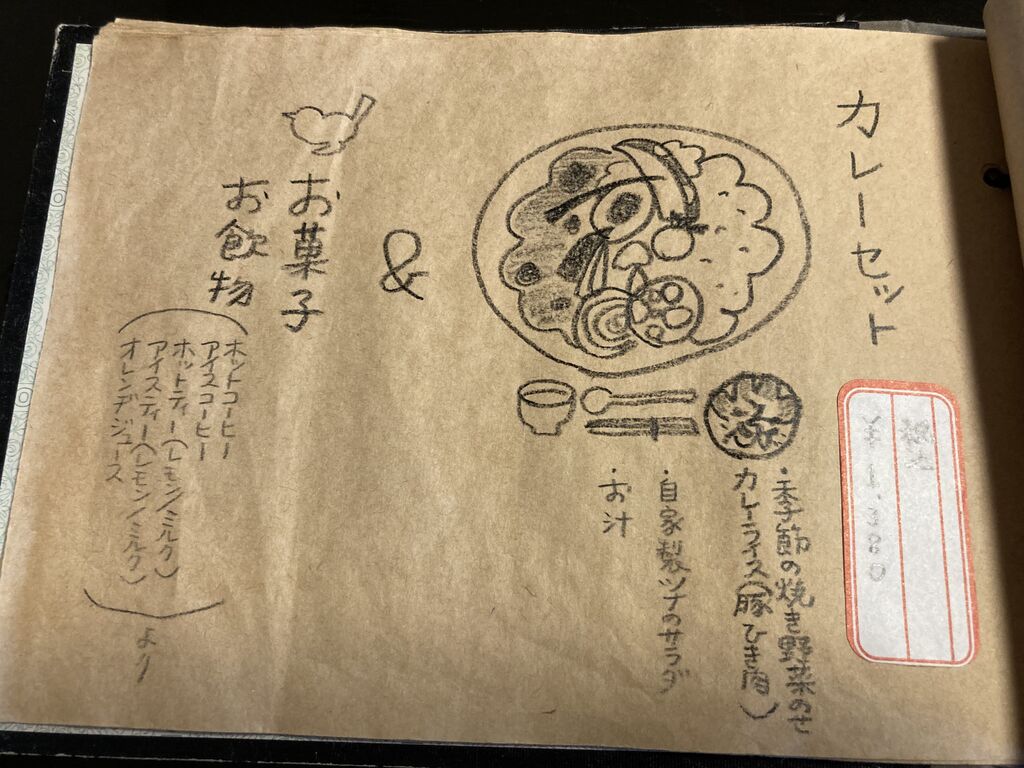 カレーセット
¥1,300
・季節の焼き野菜のせ
カレーライス(豚ひき肉)
・自家製ツナのサラダ
・お汁
&
お菓子
お飲物
(ホットコーヒー
アイスコーヒー
ホットティー(レモン/ミルク)
アイスティー(レモン/ミルク)
オレンヂジュース)より